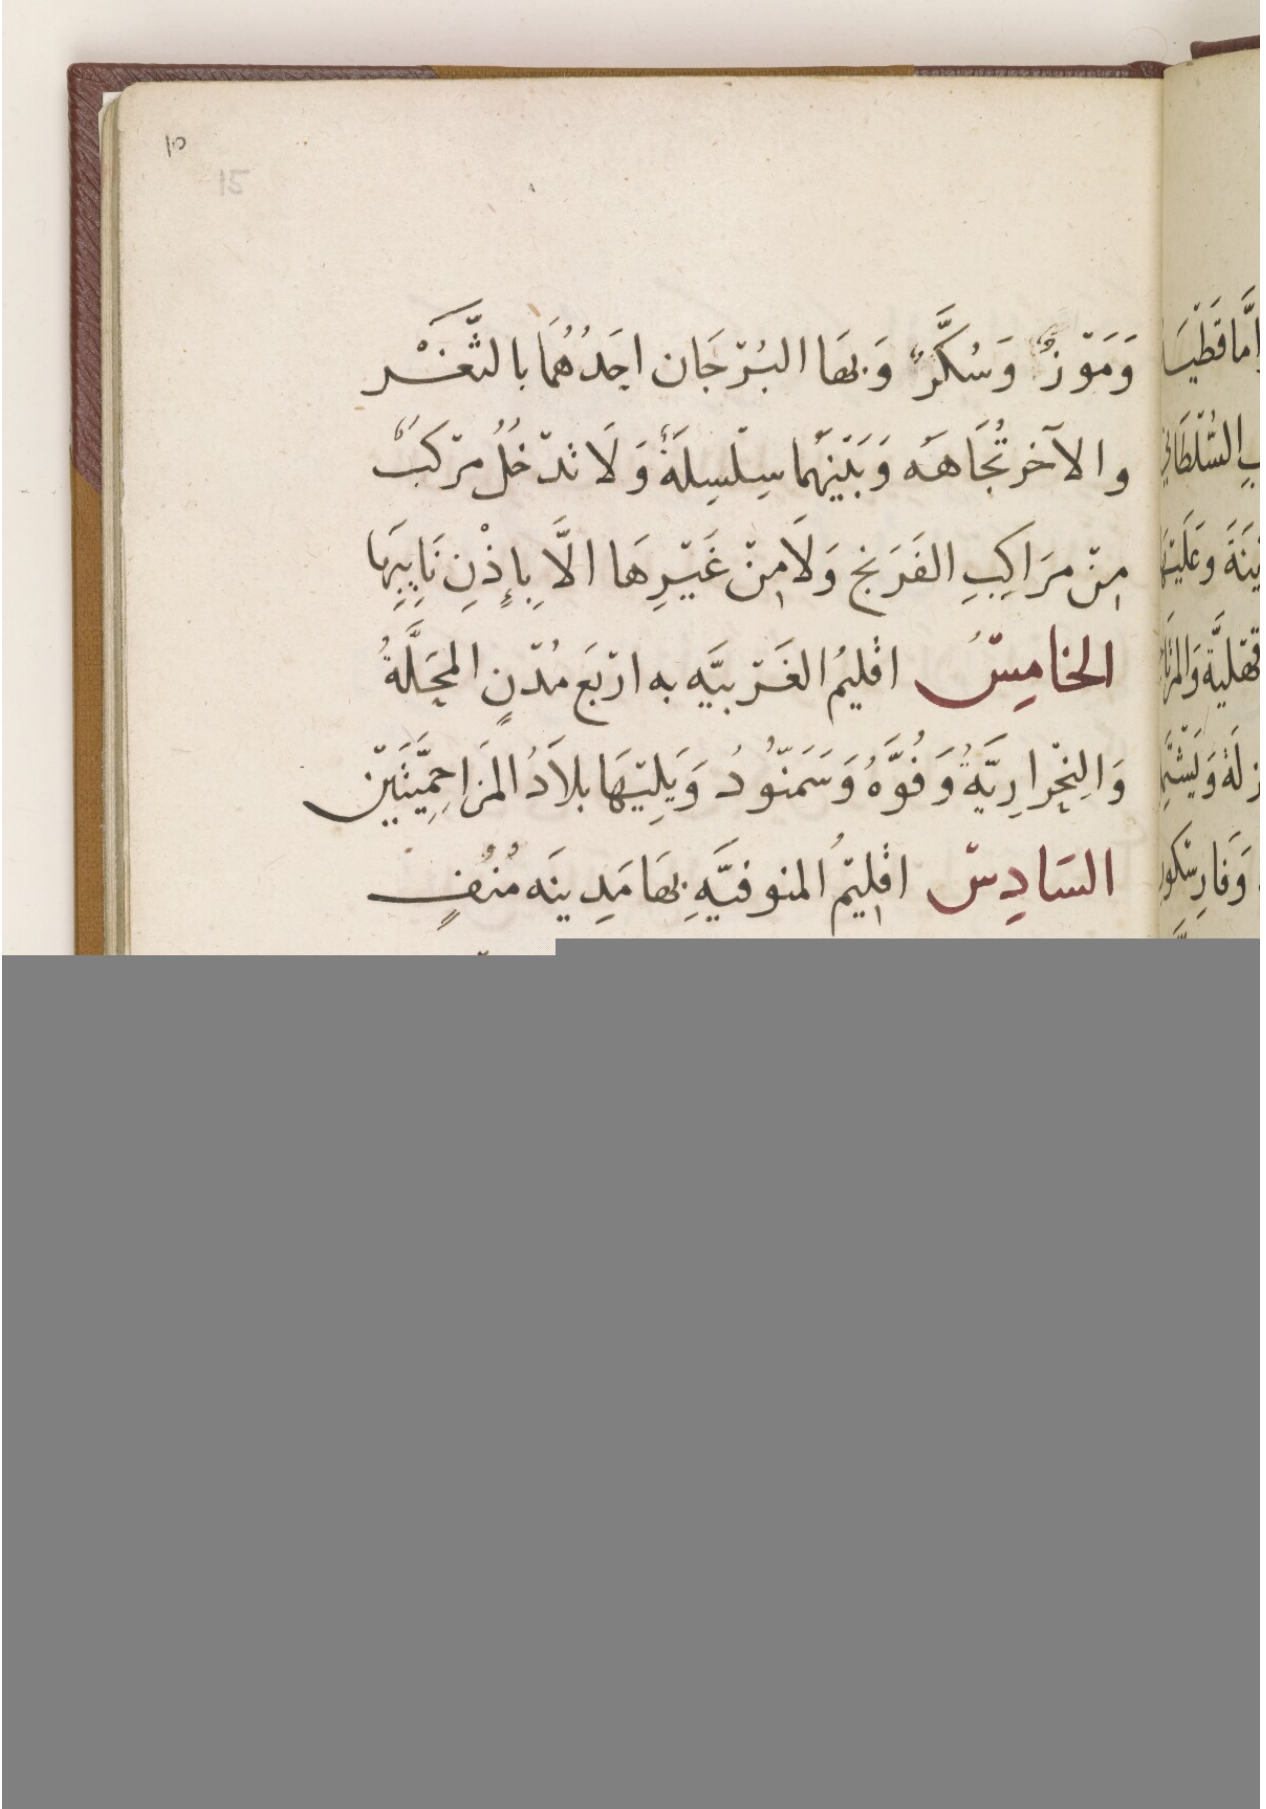 ١٥
15
وَمَوْزٌ وَسُكَّرٌ وَبِهَا البُرْجَان احَدُهُمَا بالثَّغْر
والآخر تُجَاهَه وَبَيْنَهُما سِلْسِلَةٌ وَلَا تدْخلُ مرْكَبٌ
مِنْ مرَاكِبِ الفَرَنج وَلَا مِنْ غَيْرِهَا الَّا بِإِذْنِ نَايِبِهَا
الخامِسْ اقليمُ الغَرْبيَّه به ارْبَع مُدْنٍ المحَلَّةُ
وَالنِحْرارِيَّةُ وَفُوَّهُ وَسَمَنّودُ وَيَلِيْهَا بلاَدُ المَزَاحِمِيَّتَيْن
السَادِسْ اقْلِيْمُ المنوفيَّهِ بهَا مَدِينَه مُنُفٍ